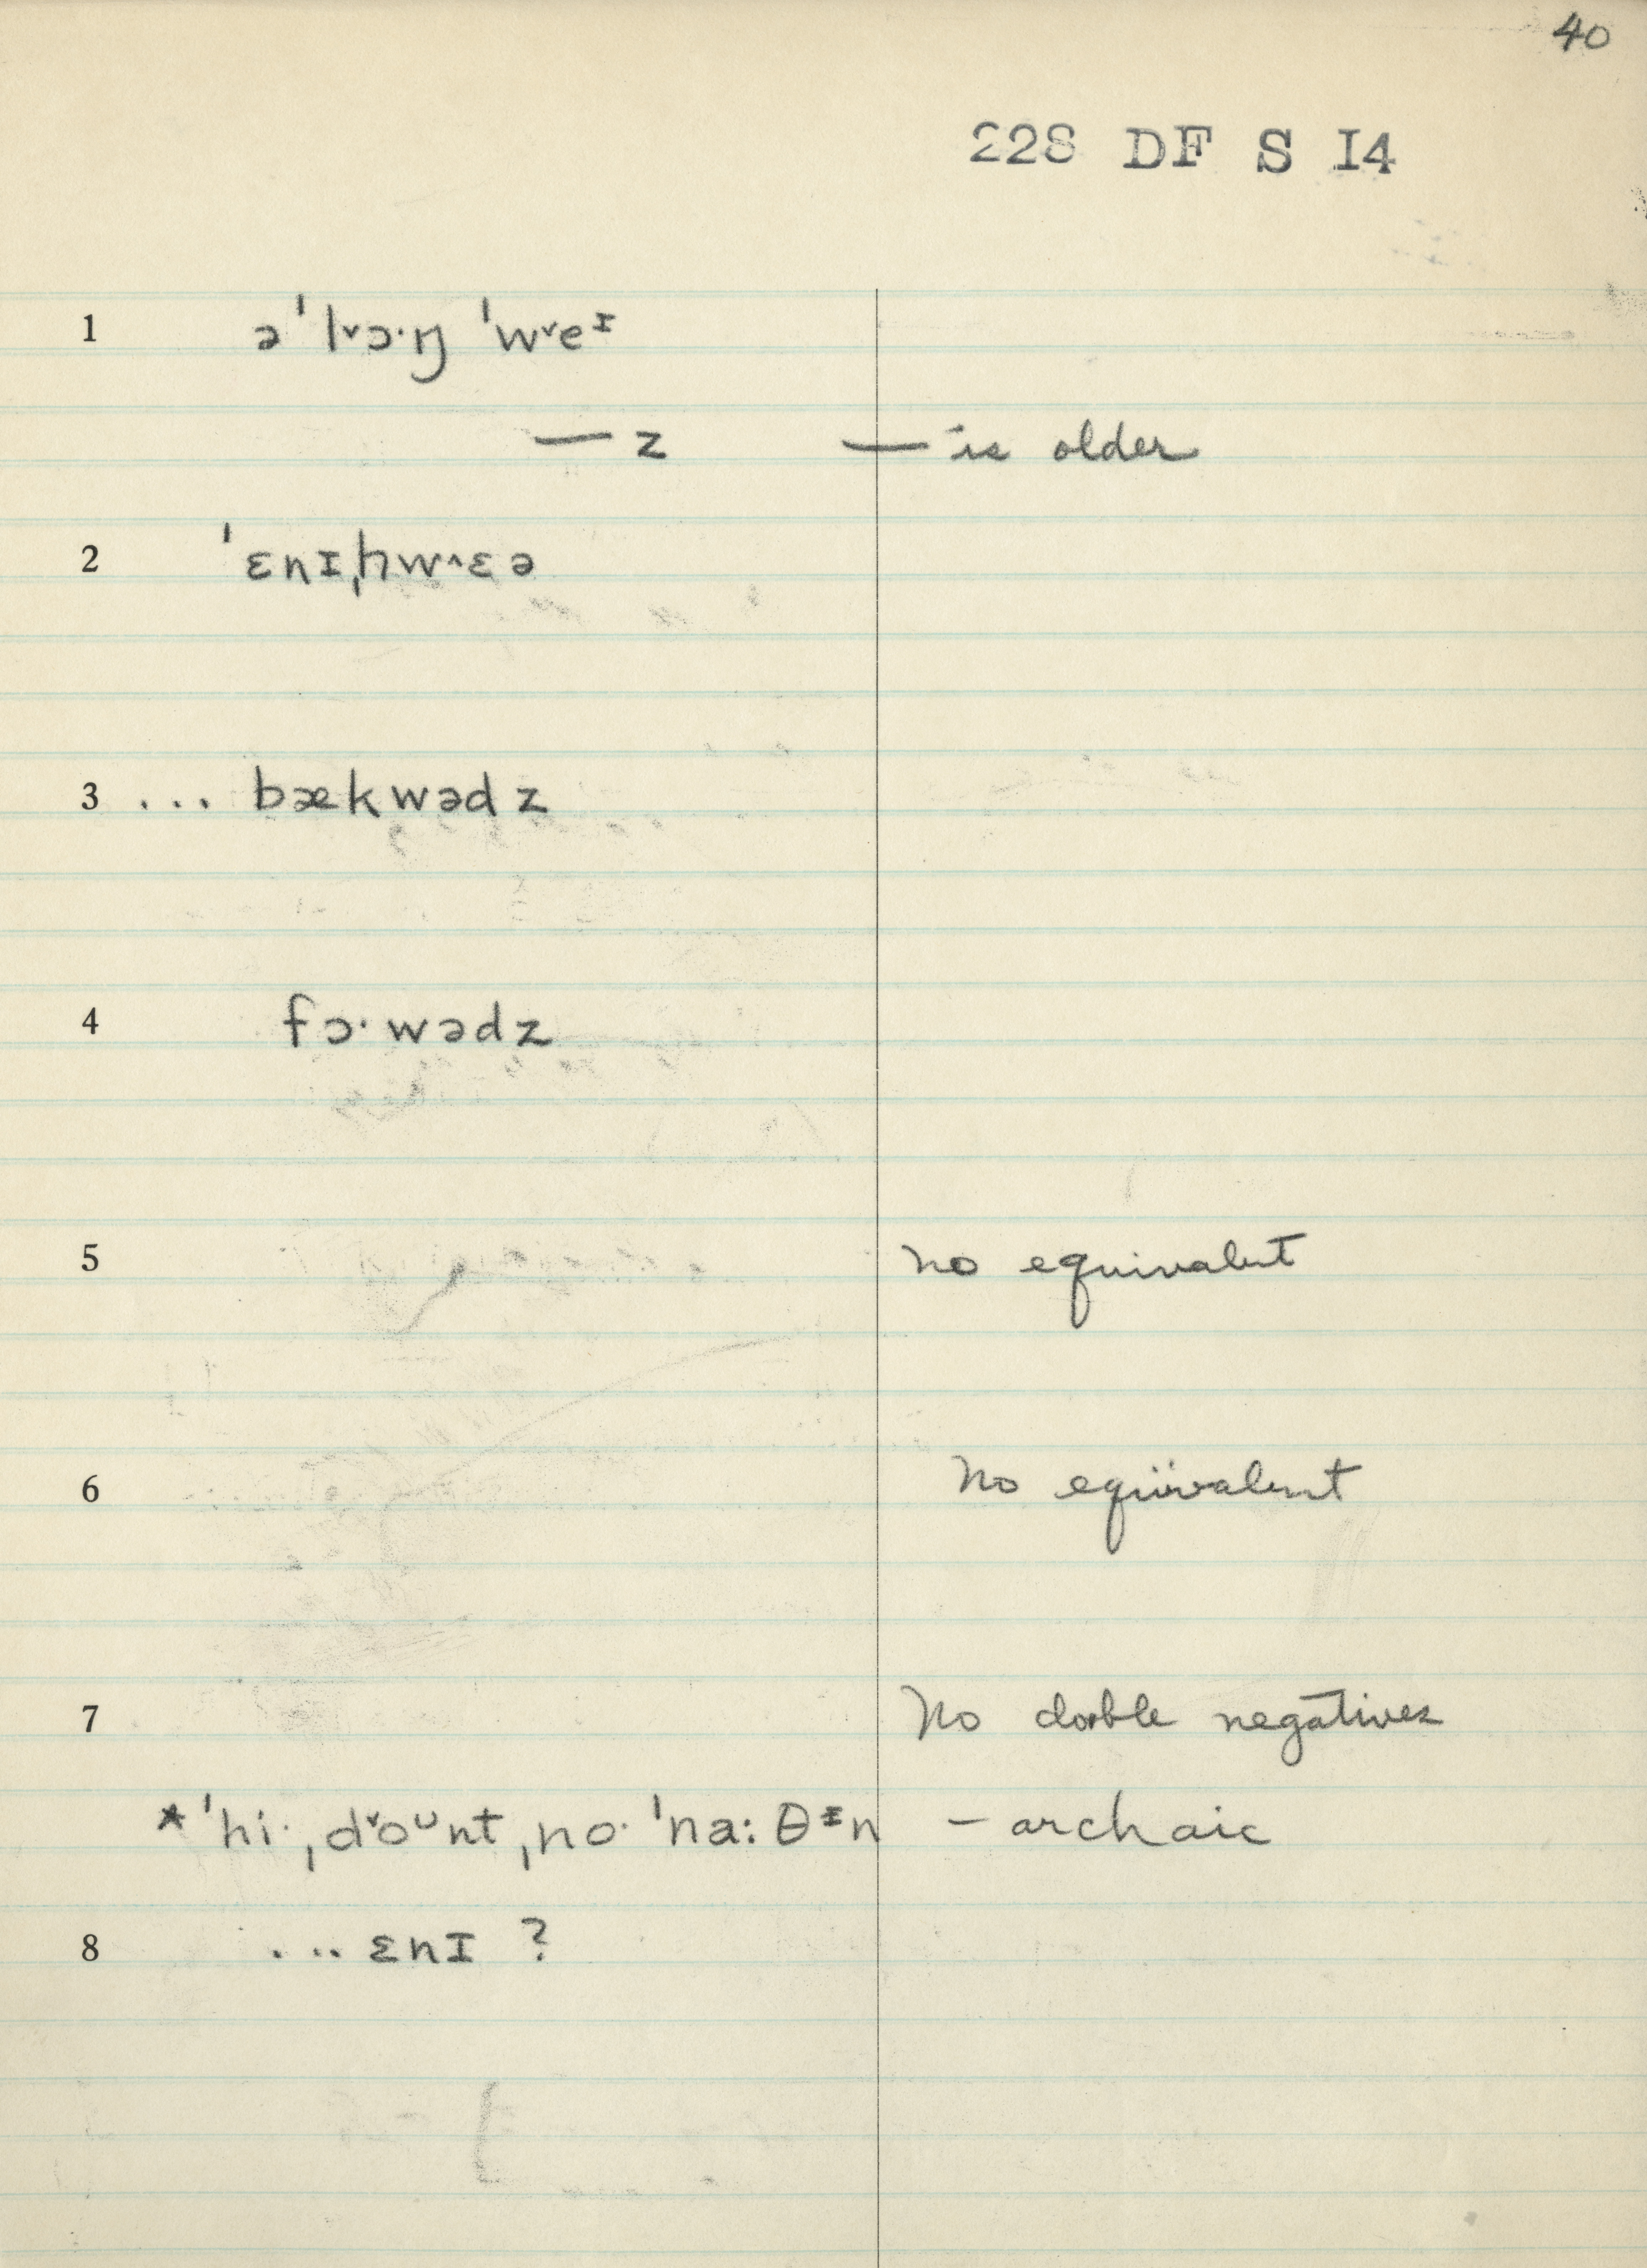 40
228 DF S I4
1 ə ˈl˅ɔ·ŋ ˈw˅eᶦ
— z — is older
2 ˈɛnɪˌhw^ɛə
3 ... bækwədz
4 fɔ·wədz
5 no equivalent
6 No equivalent
7 No double negatives
* ˈhi· ˌd˅oᵘnt ˌno· ˈna:θᶦn – archaic
8 ... ɛnɪ ?